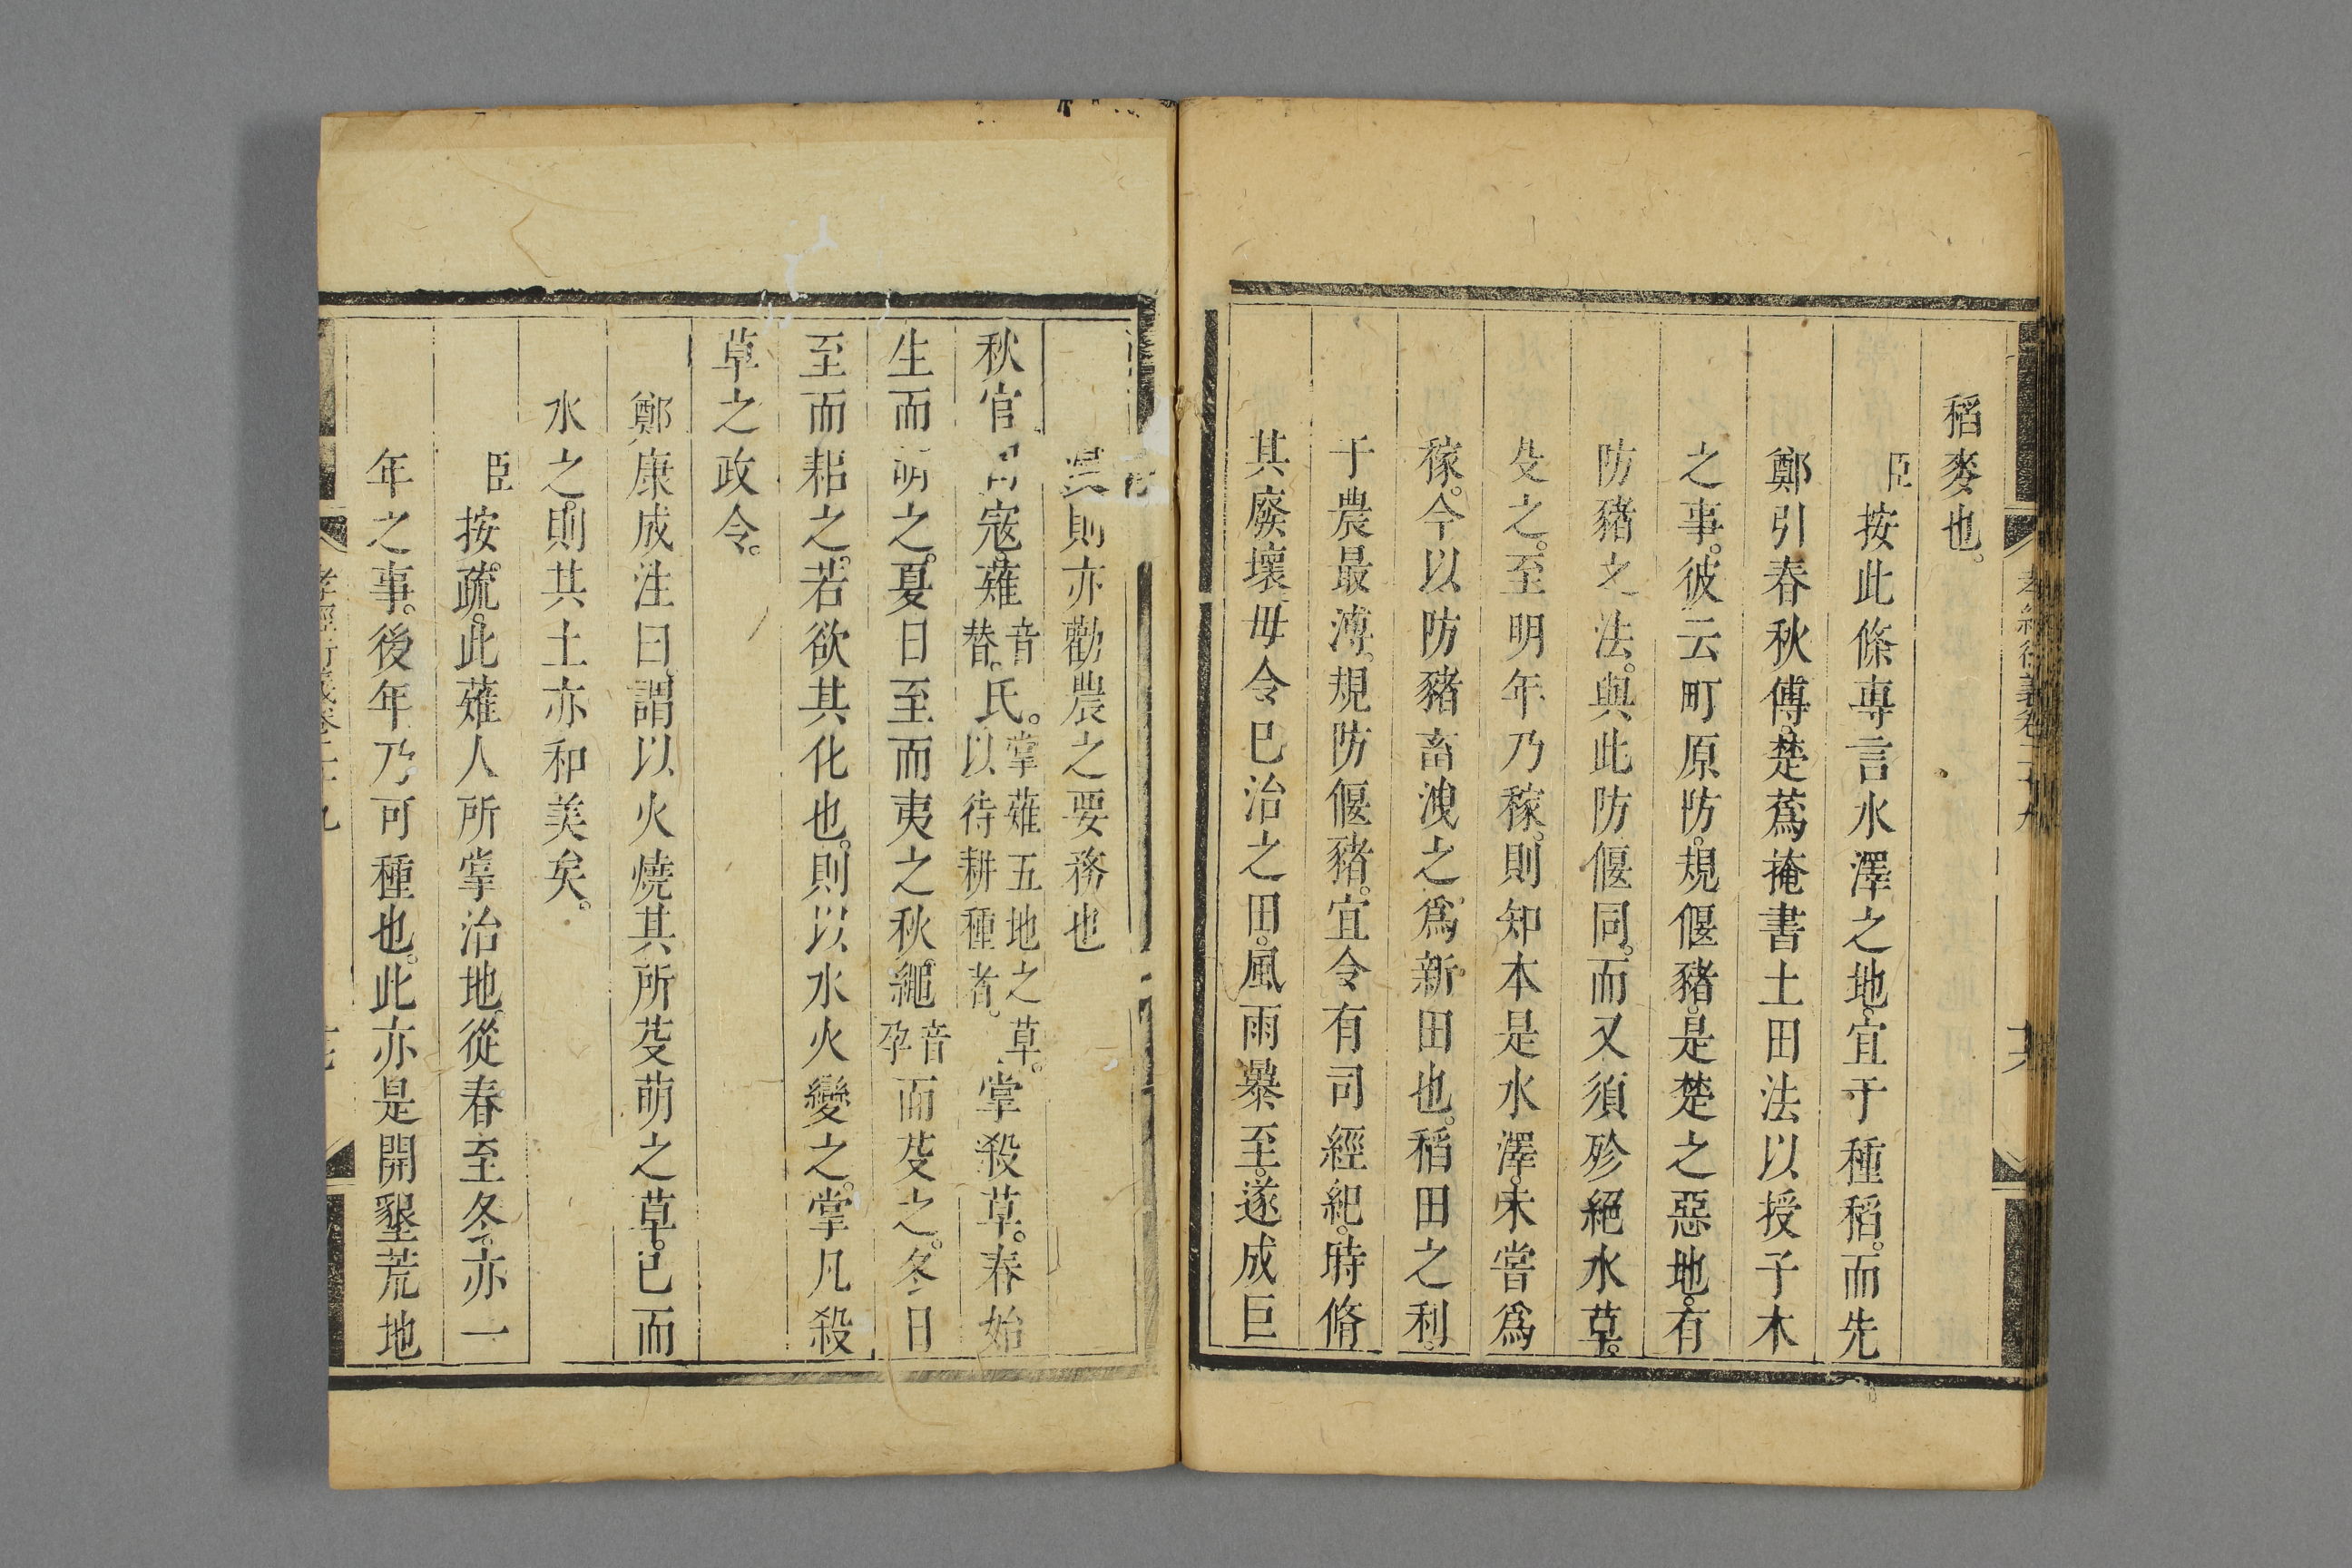 稻麥也。
臣按此條專言水澤之地。宜于種稻。而先
鄭引春秋傳。楚蒍掩書土田法以授子木
之事。彼云町原防。規偃豬。是楚之惡地。有
防豬之法。與此防偃同。而又須殄絕水草。
殳之。至明年乃稼。則知本是水澤。未嘗爲
稼。今以防豬畜洩之。爲新田也。稻田之利。
于農最溥。規防偃豬。宜令有司經紀。時脩
其廢壞。毋令已治之田。風雨暴至。遂成巨
則亦勸農之要務也
秋官寇。薙音替。氏。掌薙五地之草。以待耕種者。掌殺草。春始
生而萌之。夏日至而夷之。秋繩音孕而芟之。冬日
至而耜之。若欲其化也。則以水火變之。掌凡殺
草之政令。
鄭康成注曰。謂以火燒其所芟萌之草。已而
水之。則其土亦和美矣。
臣按疏。此薙人所掌治地。從春至冬。亦一
年之事。後年乃可種也。此亦是開墾荒地